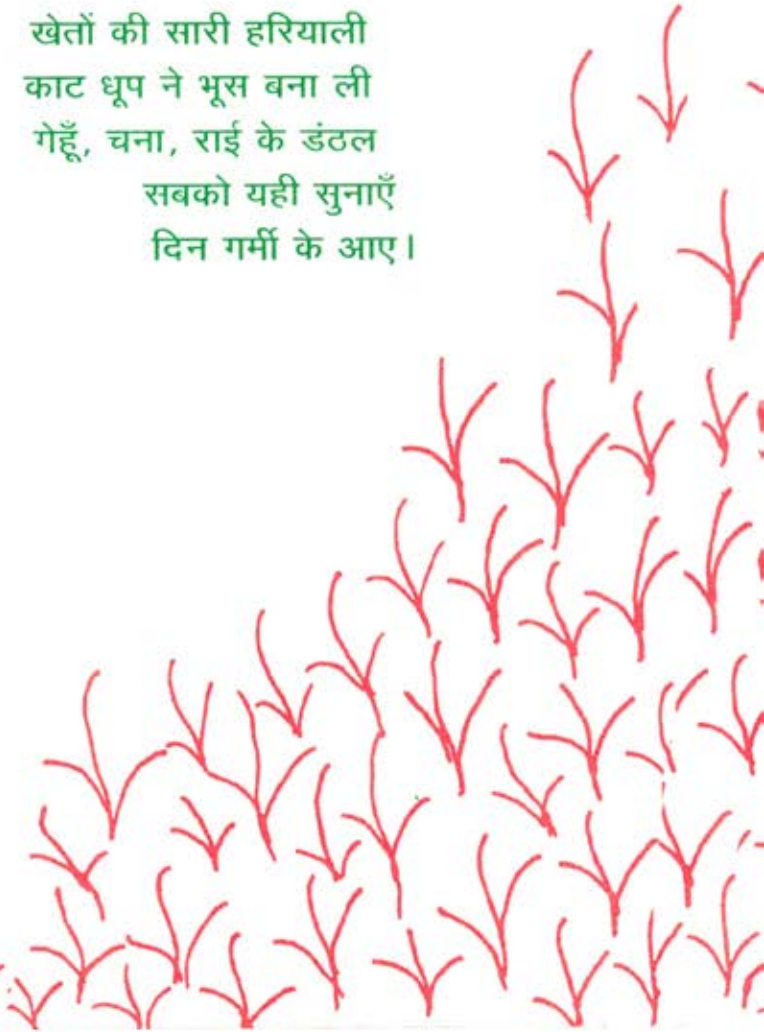 खेतों की सारी हरियाली
काट धूप ने भूस बना ली
गेहूँ, चना, राई के डंठल
सबको यही सुनाएँ
दिन गर्मी के आए।